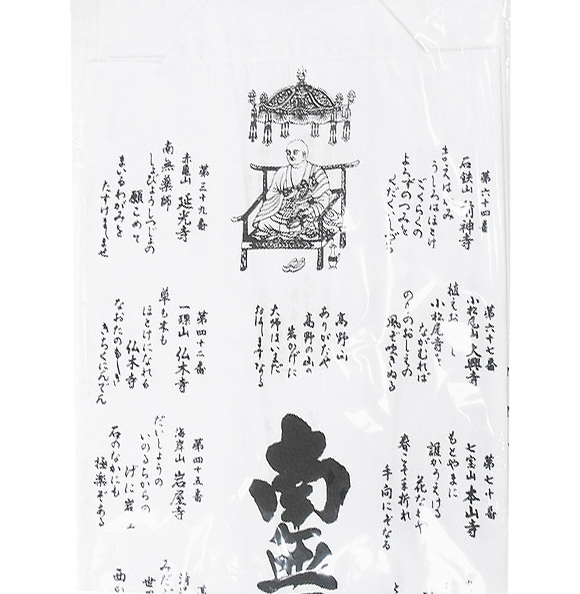 第六十四番
石鉄山 前神寺
ごくらくの
よろづのつみを
第六十七番
小松尾山 大興寺
植え
小松尾寺を
ながむれば
のりのおしえの
風ぞふきぬる
第七十番
七宝山 本山寺
もとやまに
誰かうえける
花なれや
春こそ手折れ
手向にぞなる
高野山
ありがたや
高野の山の
岩かげに
大師はいまだ
おはしますなる
南無
第三十九番
赤亀山 延光寺
南無薬師
しょびょうしつじょの
願こめて
まいるわがみを
たすけましませ
第四十二番
一理山 仏木寺
草も木も
ほとけになれる
仏木寺
なおたのもしき
きちくにんでん
第四十五番
海岸山 岩屋寺
だいしょうの
いのるちからの
げに岩
石のなかにも
極楽ぞある